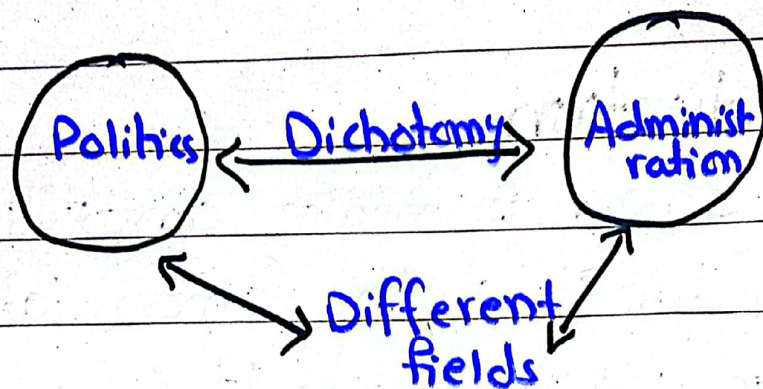 Politics
Dichotomy
Administ
ration
Different
fields